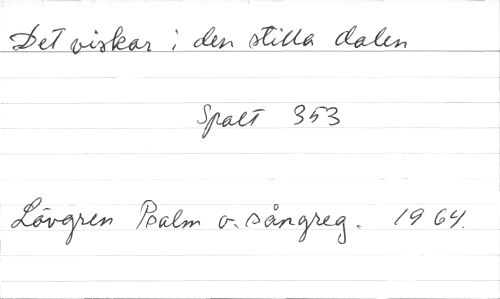 Det viskar i den stilla dalen
Spalt 353
Lövgren Psalm o. sångreg. 1964.